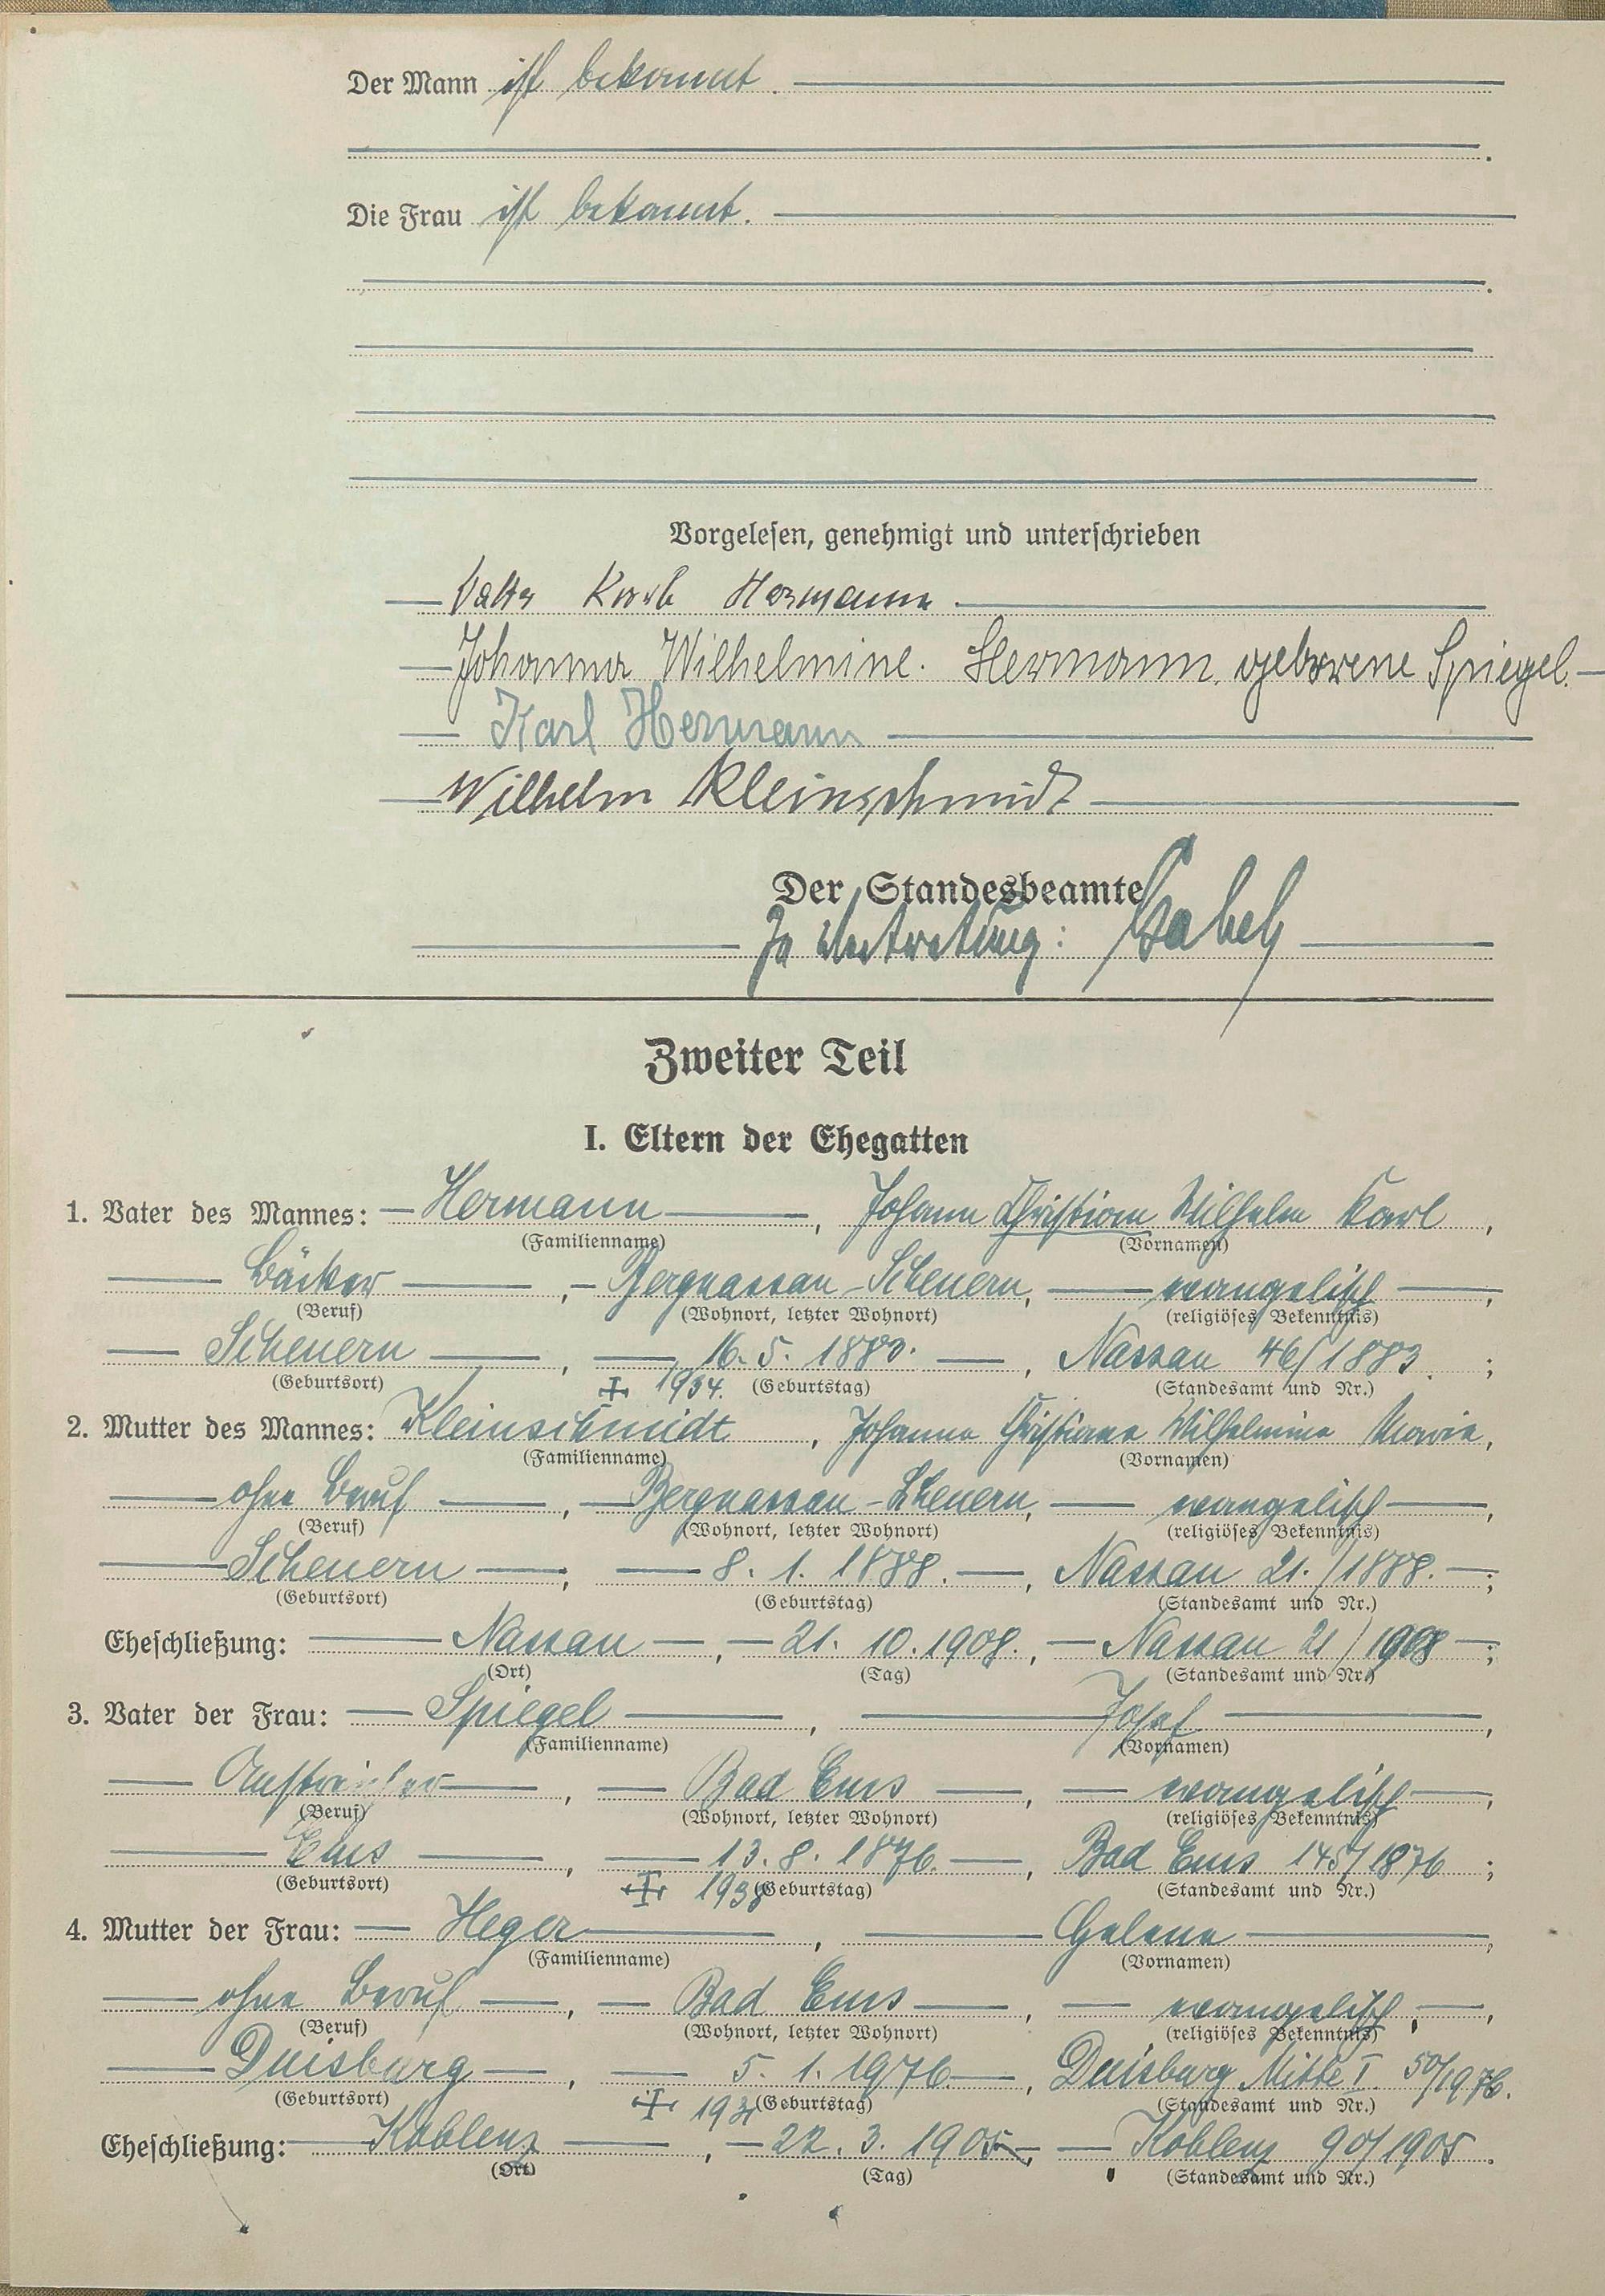 Der Mann ist bekannt.
Die Frau ist bekannt.
Vorgelesen, genehmigt und unterschrieben
Hermann
Johanna Wilhelmine. Hermann. geborene Spiegel.
Karl Hermann
Wilhelm Kleinschmidt
Der Standesbeamte
In Vertretung:
Zweiter Teil
I. Eltern der Ehegatten
1. Vater des Mannes: Hermann, Johann Christian Wilhelm Karl,
(Familienname) (Vornamen)
Bäcker, Bergnassau-Scheuern, evangelisch,
(Beruf) (Wohnort, letzter Wohnort) (religiöses Bekenntnis)
Scheuern, 16. 5. 1883., Nassau 46/1883.;
(Geburtsort) (Geburtstag) (Standesamt und Nr.)
2. Mutter des Mannes: Kleinschmidt, Johanna Christiane Wilhelmine Marie,
(Familienname) (Vornamen)
ohne Beruf, Bergnassau-Scheuern, evangelisch,
(Beruf) (Wohnort, letzter Wohnort) (religiöses Bekenntnis)
Scheuern, 8. 1. 1888., Nassau 21./1888.;
(Geburtsort) (Geburtstag) (Standesamt und Nr.)
Eheschließung: Nassau, 21. 10. 1908., Nassau 21/1908;
(Ort) (Tag) (Standesamt und Nr.)
3. Vater der Frau: Spiegel, Josef,
(Familienname) (Vornamen)
Anstreicher, Bad Ems, evangelisch,
(Beruf) (Wohnort, letzter Wohnort) (religiöses Bekenntnis)
Ems, 13. 8. 1876., Bad Ems 145/1876;
(Geburtsort) ✠ 1938 (Geburtstag) (Standesamt und Nr.)
4. Mutter der Frau: Heger, Helene,
(Familienname) (Vornamen)
ohne Beruf, Bad Ems, evangelisch,
(Beruf) (Wohnort, letzter Wohnort) (religiöses Bekenntnis)
Duisburg, 5. 1. 1976., Duisburg Mitte I. 50/1976.
(Geburtsort) (Geburtstag) (Standesamt und Nr.)
Eheschließung: Koblenz, 22. 3. 1905, Koblenz 90/1905.
(Ort) (Tag) (Standesamt und Nr.)